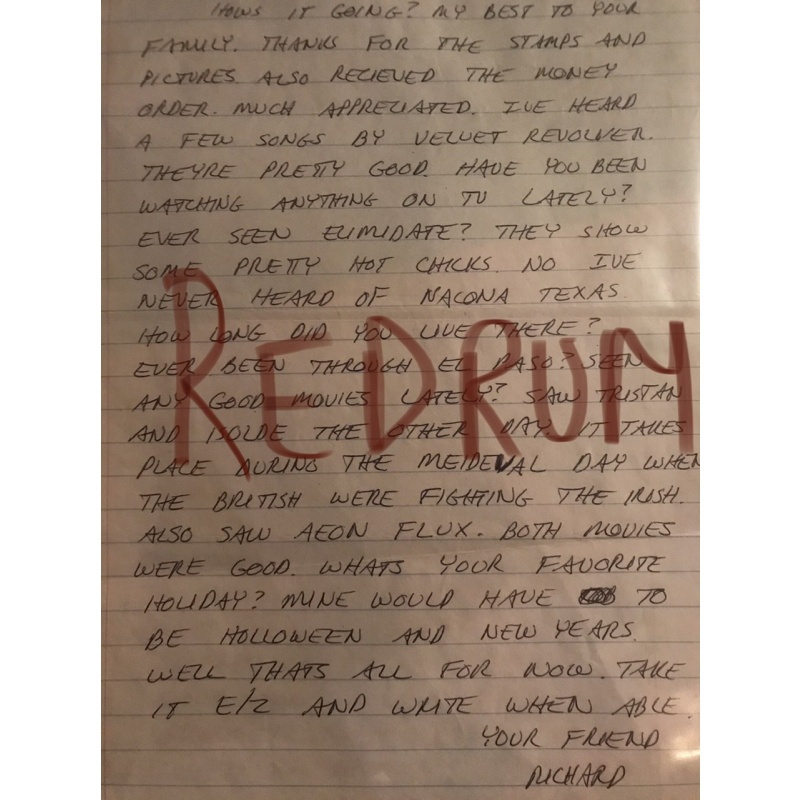 HOWS IT GOING? MY BEST TO YOUR
FAMILY. THANKS FOR THE STAMPS AND
PICTURES. ALSO RECIEVED THE MONEY
ORDER. MUCH APPRECIATED. IVE HEARD
A FEW SONGS BY VELVET REVOLVER.
THEYRE PRETTY GOOD. HAVE YOU BEEN
WATCHING ANYTHING ON TV LATELY?
EVER SEEN ELIMIDATE? THEY SHOW
SOME PRETTY HOT CHICKS. NO IVE
NEVER HEARD OF NACONA TEXAS.
HOW LONG DID YOU LIVE THERE?
EVER BEEN THROUGH EL PASO? SEEN
REDRUM
ANY GOOD MOVIES LATELY? SAW TRISTAN
AND ISOLDE THE OTHER DAY. IT TAKES
PLACE DURING THE MEIDEVAL DAY WHEN
THE BRITISH WERE FIGHTING THE IRISH.
ALSO SAW AEON FLUX. BOTH MOVIES
WERE GOOD. WHATS YOUR FAVORITE
HOLIDAY? MINE WOULD HAVE TO
BE HOLLOWEEN AND NEW YEARS.
WELL THATS ALL FOR NOW. TAKE
IT E/Z AND WRITE WHEN ABLE.
YOUR FRIEND
RICHARD